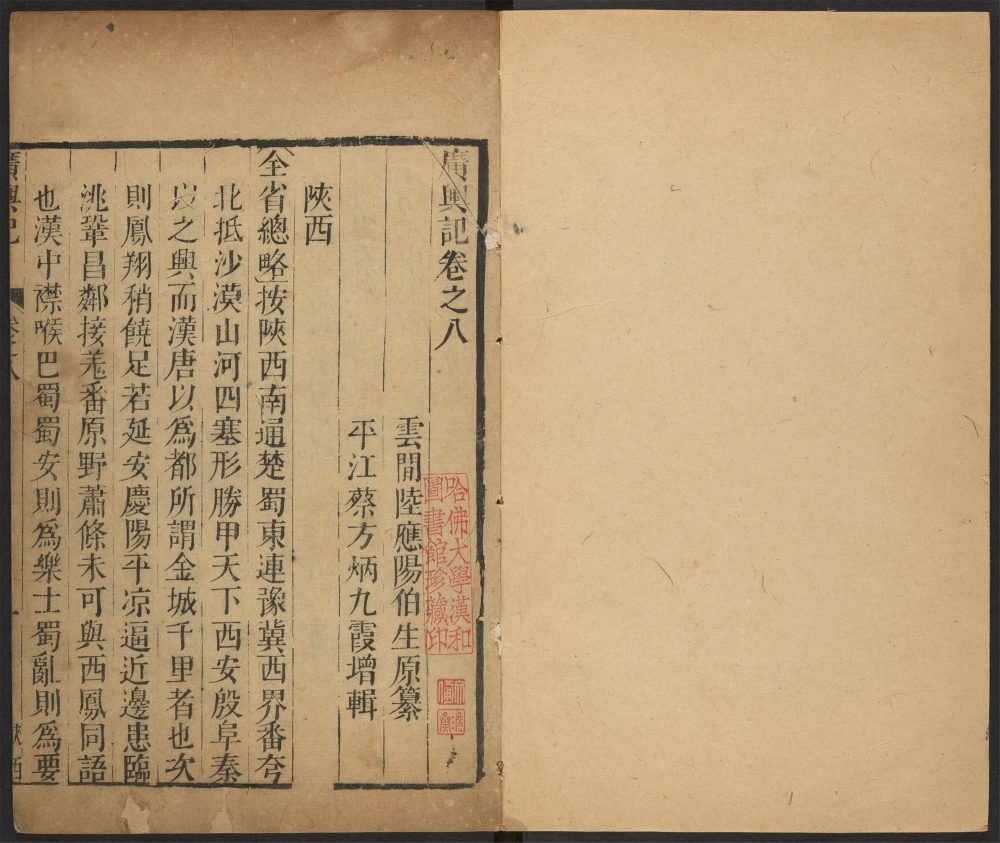 廣輿記卷之八
雲間陸應陽伯生原纂
平江蔡方炳九霞增輯
陝西
全省總略按陝西南通楚蜀東連豫冀西界番夸
北抵沙漠山河四塞形勝甲天下西安殷阜秦
㞐之興而漢唐以爲都所謂金城千里者也次
則鳳翔稍饒足若延安慶陽平凉逼近邊患臨
洮鞏昌鄰接羗番原野蕭條未可與西鳳同語
也漢中襟喉巴蜀蜀安則爲樂士蜀亂則爲要
廣輿記
卷之八
一
陝西
哈佛大學漢和
圖書館珍藏印